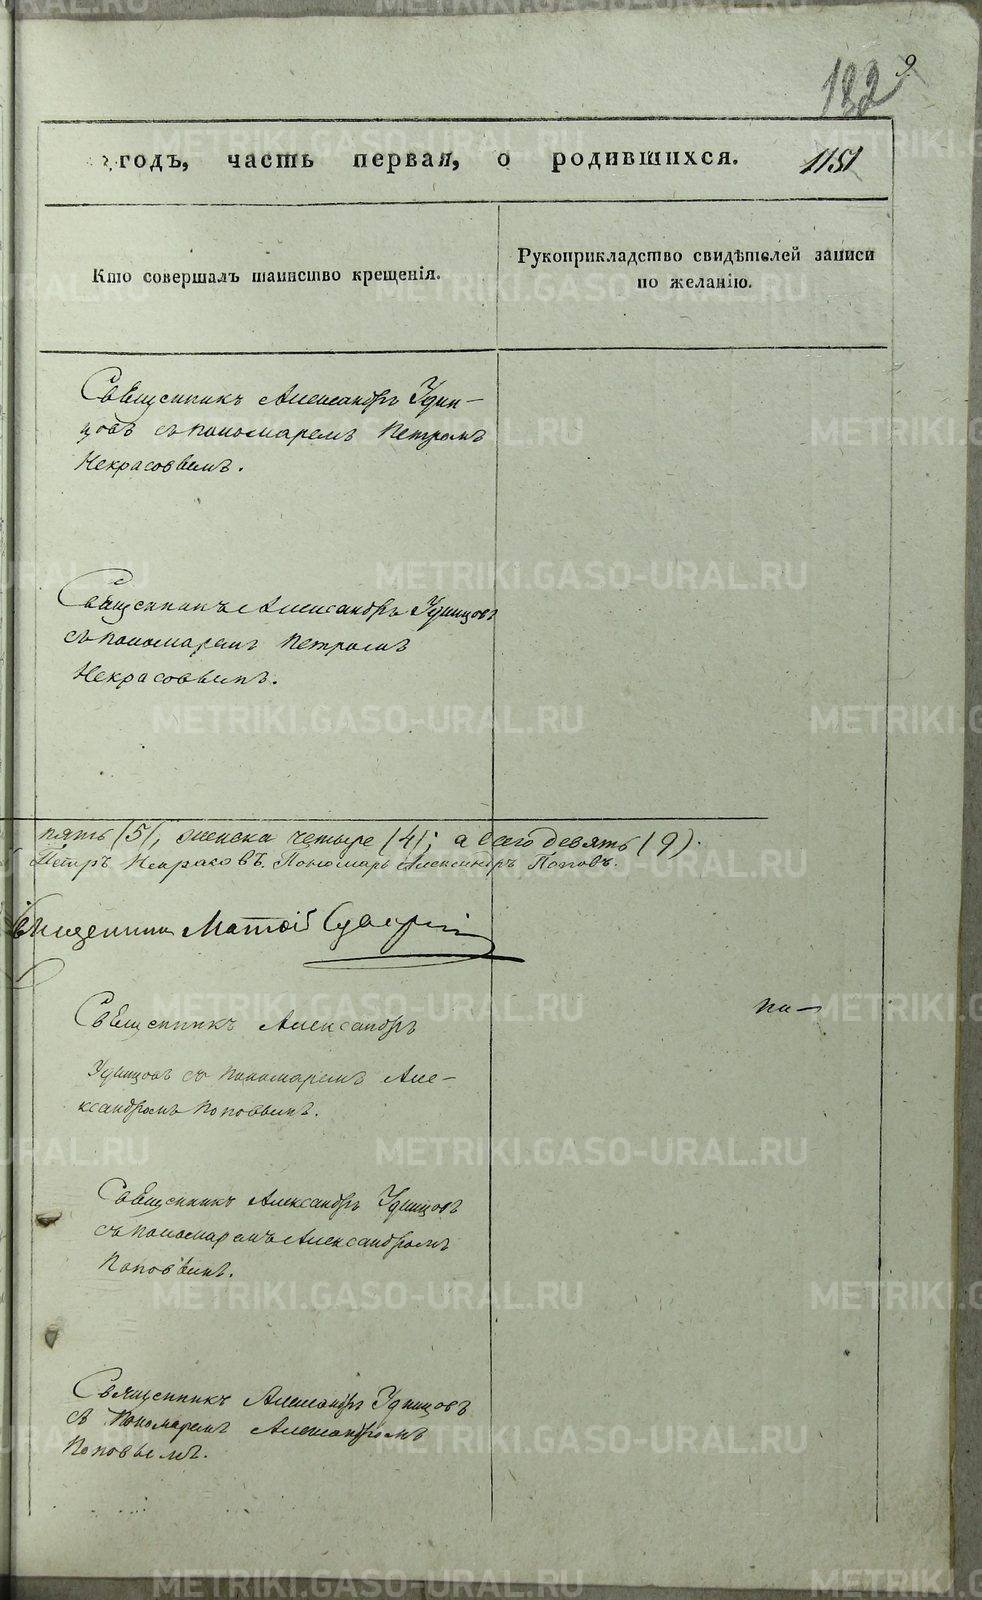 182 9
годъ, часть первая, о родившихся. 1151
Кто совершалъ таинство крещенія.
Рукоприкладство свидѣтелей записи
по желанію.
Священникъ Александръ Удин-
цовъ съ пономаремъ Петромъ
Некрасовымъ.
Священникъ Александръ Удинцовъ
съ пономаремъ Петромъ
Некрасовымъ.
пять (5), женска четыре (4); а всего девять (9).
Петръ Некрасовъ. Пономарь Александръ Поповъ.
Священникъ Матѳей
Священникъ Александръ
Удинцовъ съ пономаремъ Але-
ксандромъ Поповымъ.
Священникъ Александръ Удинцовъ
съ пономаремъ Александромъ
Поповымъ.
Священникъ Александръ Удинцовъ
съ пономаремъ Александромъ
Поповымъ.
METRIKI.GASO-URAL.RU